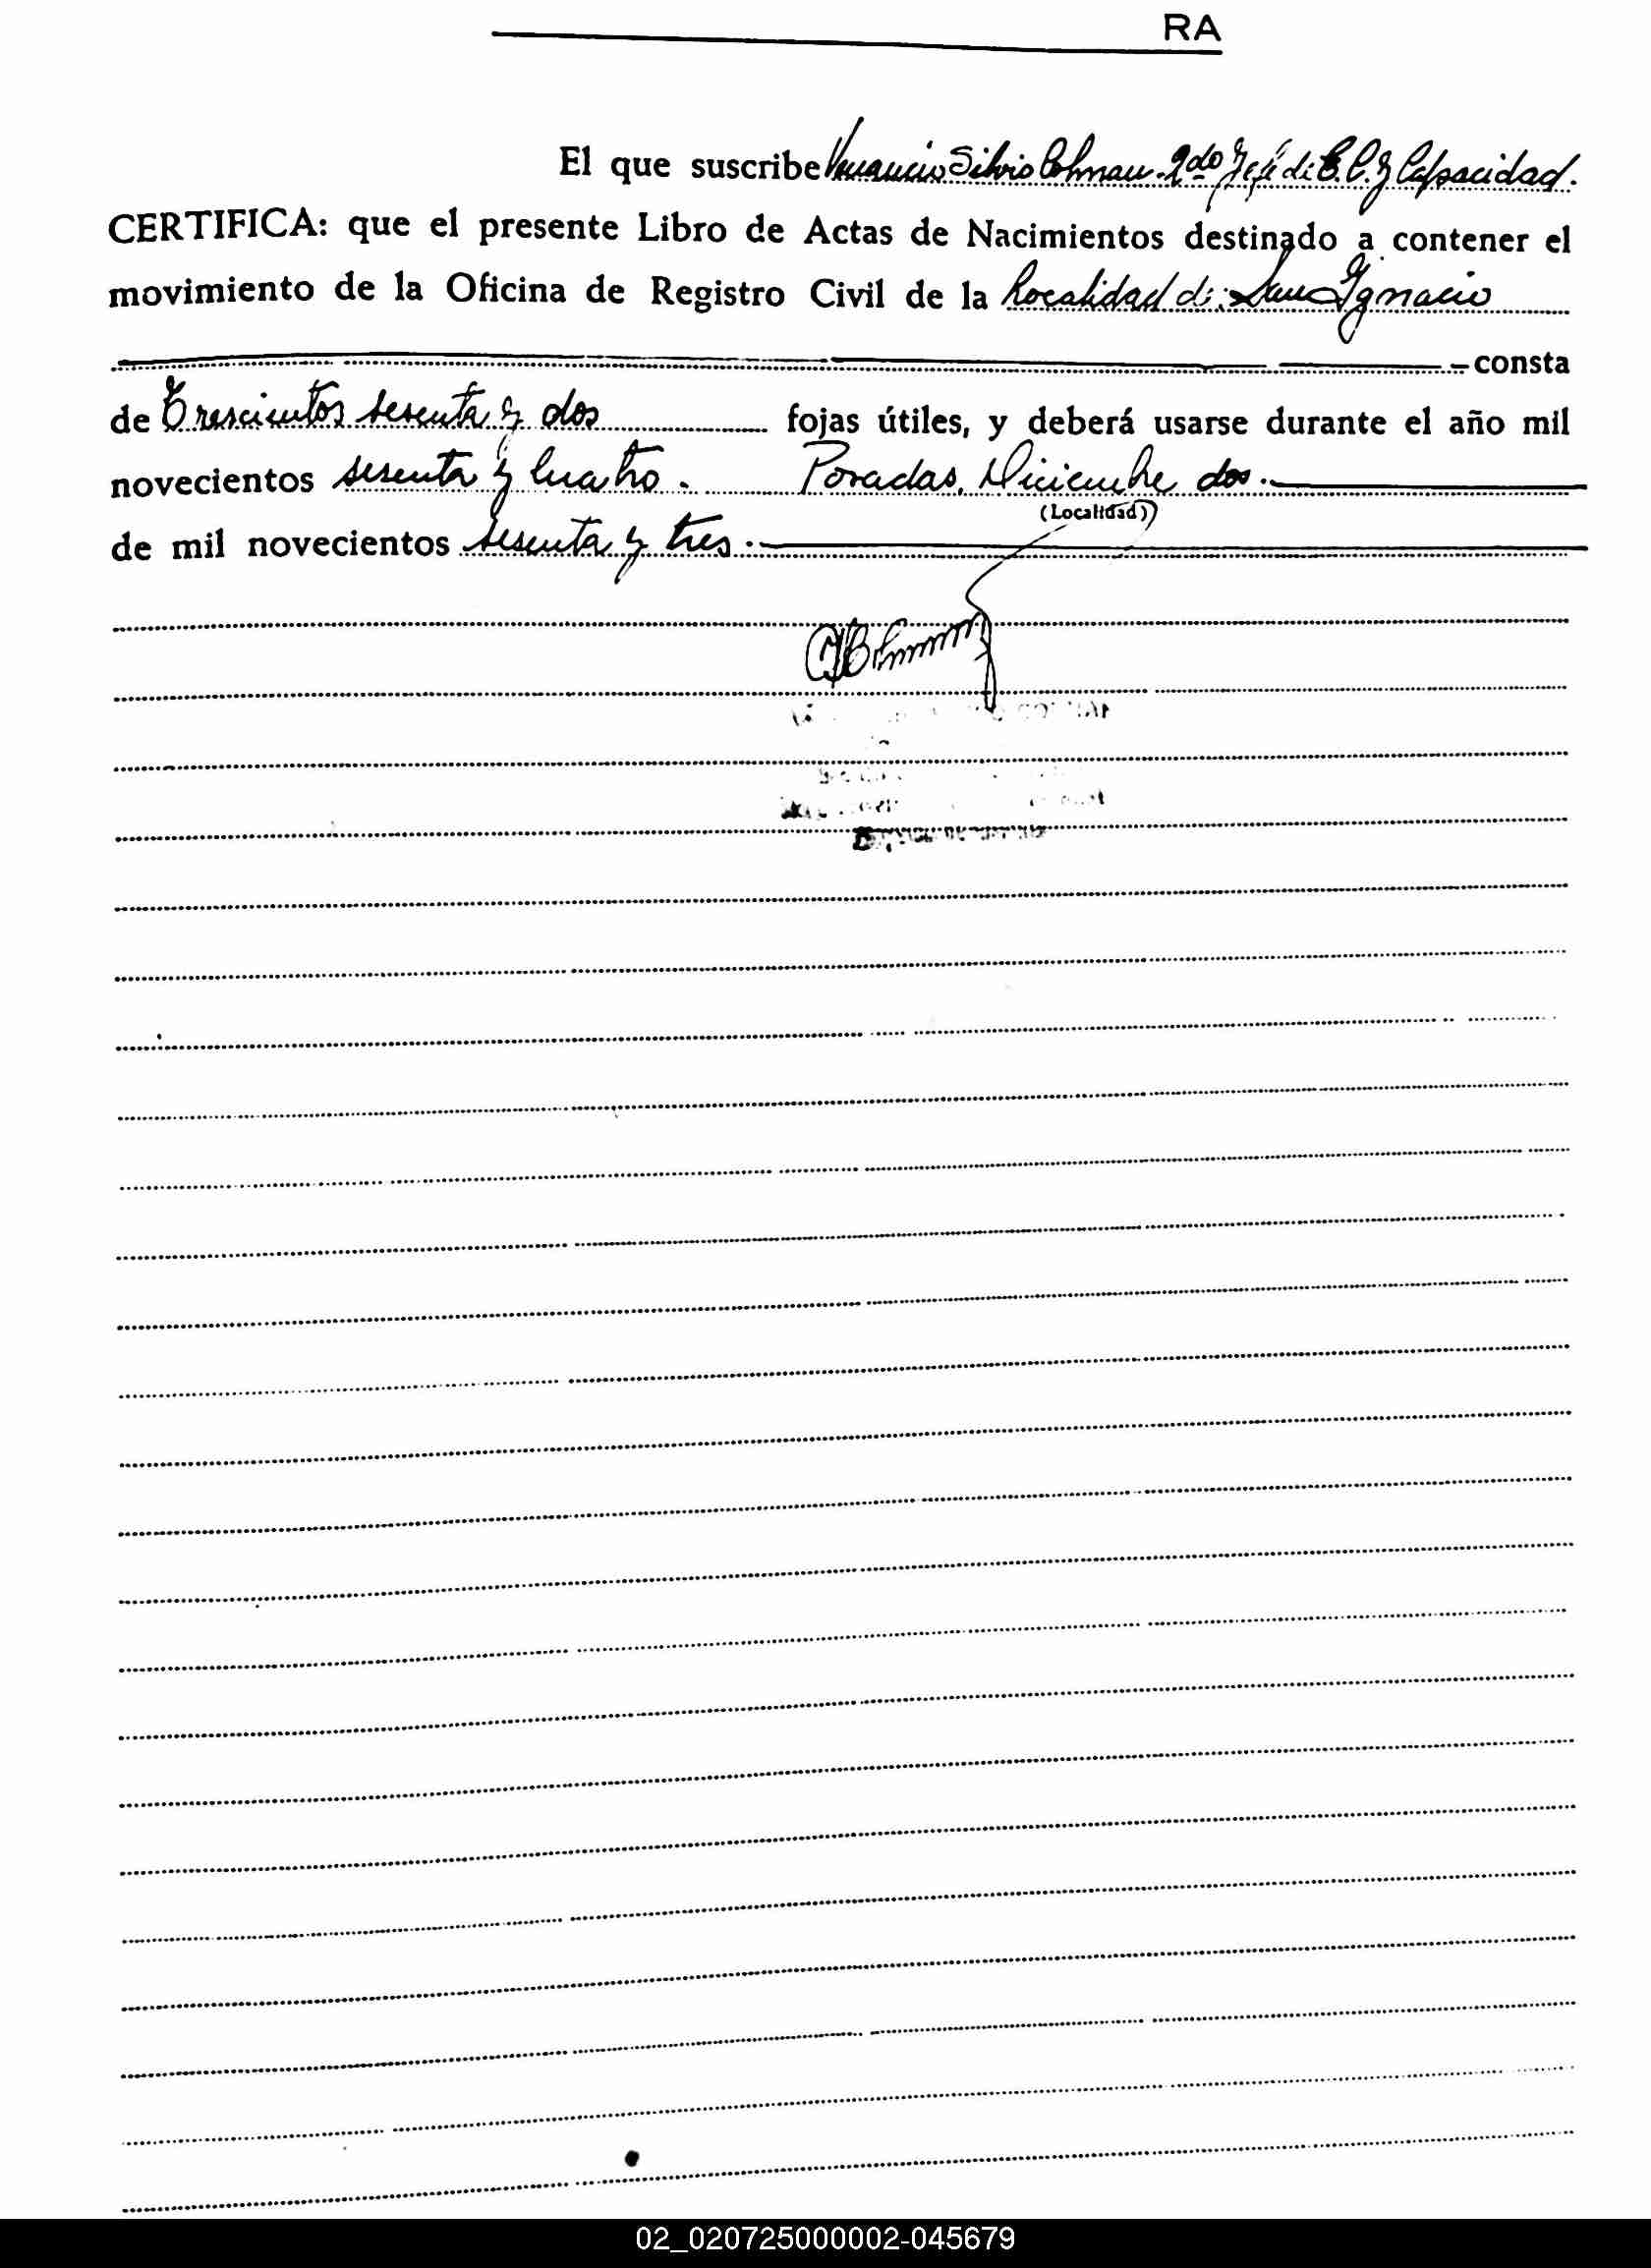 RA
El que suscribe Venancio Silvio Colman. 2do Jefe de E. C. y Capacidad.
CERTIFICA: que el presente Libro de Actas de Nacimientos destinado a contener el
movimiento de la Oficina de Registro Civil de la Localidad de San Ignacio
consta
de Trescientos sesenta y dos fojas útiles, y deberá usarse durante el año mil
novecientos sesenta y cuatro. Posadas, Diciembre dos.
(Localidad)
de mil novecientos sesenta y tres.
02_020725000002-045679